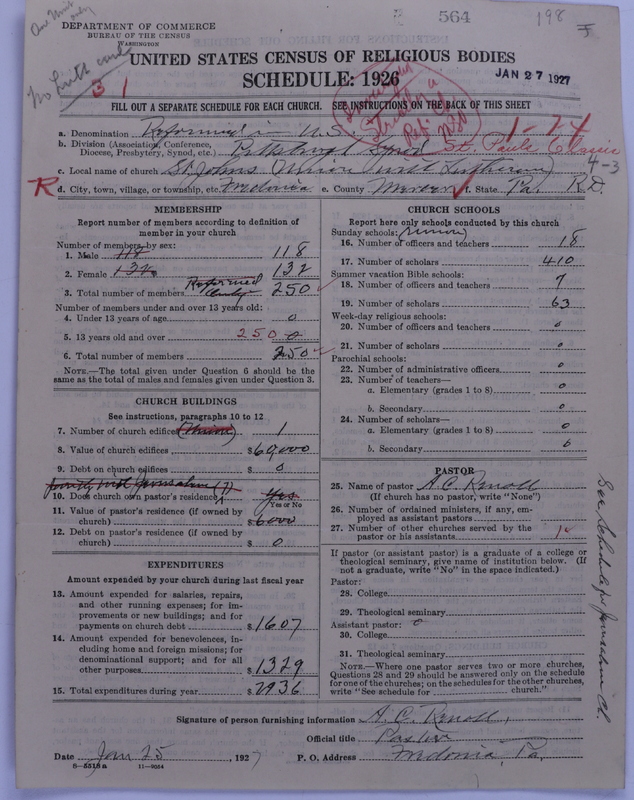 564
198
One Unit only
DEPARTMENT OF COMMERCE
BUREAU OF THE CENSUS
WASHINGTON
UNITED STATES CENSUS OF RELIGIOUS BODIES
SCHEDULE: 1926
JAN 27 1927
31
FILL OUT A SEPARATE SCHEDULE FOR EACH CHURCH. SEE INSTRUCTIONS ON THE BACK OF THIS SHEET
a. Denomination Reformed in U.S.
1-24
b. Division (Association, Conference,
Diocese, Presbytery, Synod, etc.) Pittsburgh Synod St. Pauls Classis
4-3
c. Local name of church St. Johns Union (with Lutheran)
R d. City, town, village, or township, etc. Fredonia e. County Mercer f. State Pa. R.D.
MEMBERSHIP
Report number of members according to definition of
member in your church
Number of members by sex:
1. Male 118 118
2. Female 132 132
3. Total number of members Reformed only 250
Number of members under and over 13 years old:
4. Under 13 years of age 0
5. 13 years old and over 250 0
6. Total number of members 250
NOTE.—The total given under Question 6 should be
the same as the total of males and females given under Question 3.
CHURCH BUILDINGS
See instructions, paragraphs 10 to 12
7. Number of church edifices (Union) 1
8. Value of church edifices $60,000
9. Debt on church edifices $0
jointly with Jerusalem (?)
10. Does church own pastor's residence? Yes
Yes or No
11. Value of pastor's residence (if owned by
church) $6000
12. Debt on pastor's residence (if owned by
church) $0
EXPENDITURES
Amount expended by your church during last fiscal year
13. Amount expended for salaries, repairs,
and other running expenses; for im-
provements or new buildings; and for
payments on church debt $1607
14. Amount expended for benevolences, in-
cluding home and foreign missions; for
denominational support; and for all
other purposes $1329
15. Total expenditures during year $2936
CHURCH SCHOOLS
Report here only schools conducted by this church
Sunday schools: (union)
16. Number of officers and teachers 18
17. Number of scholars 410
Summer vacation Bible schools:
18. Number of officers and teachers 7
19. Number of scholars 63
Week-day religious schools:
20. Number of officers and teachers 0
21. Number of scholars 0
Parochial schools:
22. Number of administrative officers 0
23. Number of teachers—
a. Elementary (grades 1 to 8) 0
b. Secondary 0
24. Number of scholars—
a. Elementary (grades 1 to 8) 0
b. Secondary 0
PASTOR
25. Name of pastor A. C. Renoll
(If church has no pastor, write "None")
26. Number of ordained ministers, if any, em-
ployed as assistant pastors
27. Number of other churches served by the
pastor or his assistants 1
If pastor (or assistant pastor) is a graduate of a college or
theological seminary, give name of institution below. (If
not a graduate, write "No" in the space indicated.)
Pastor:
28. College
29. Theological seminary
Assistant pastor: 0
30. College
31. Theological seminary
NOTE.—Where one pastor serves two or more churches,
Questions 28 and 29 should be answered only on the schedule
for one of the churches; on the schedules for the other churches,
write "See schedule for church."
See Schedule for Jerusalem Ch.
Signature of person furnishing information A. C. Renoll,
Official title Pastor
Date Jan 25, 1927 P. O. Address Fredonia, Pa.
8—5518a 11—9564